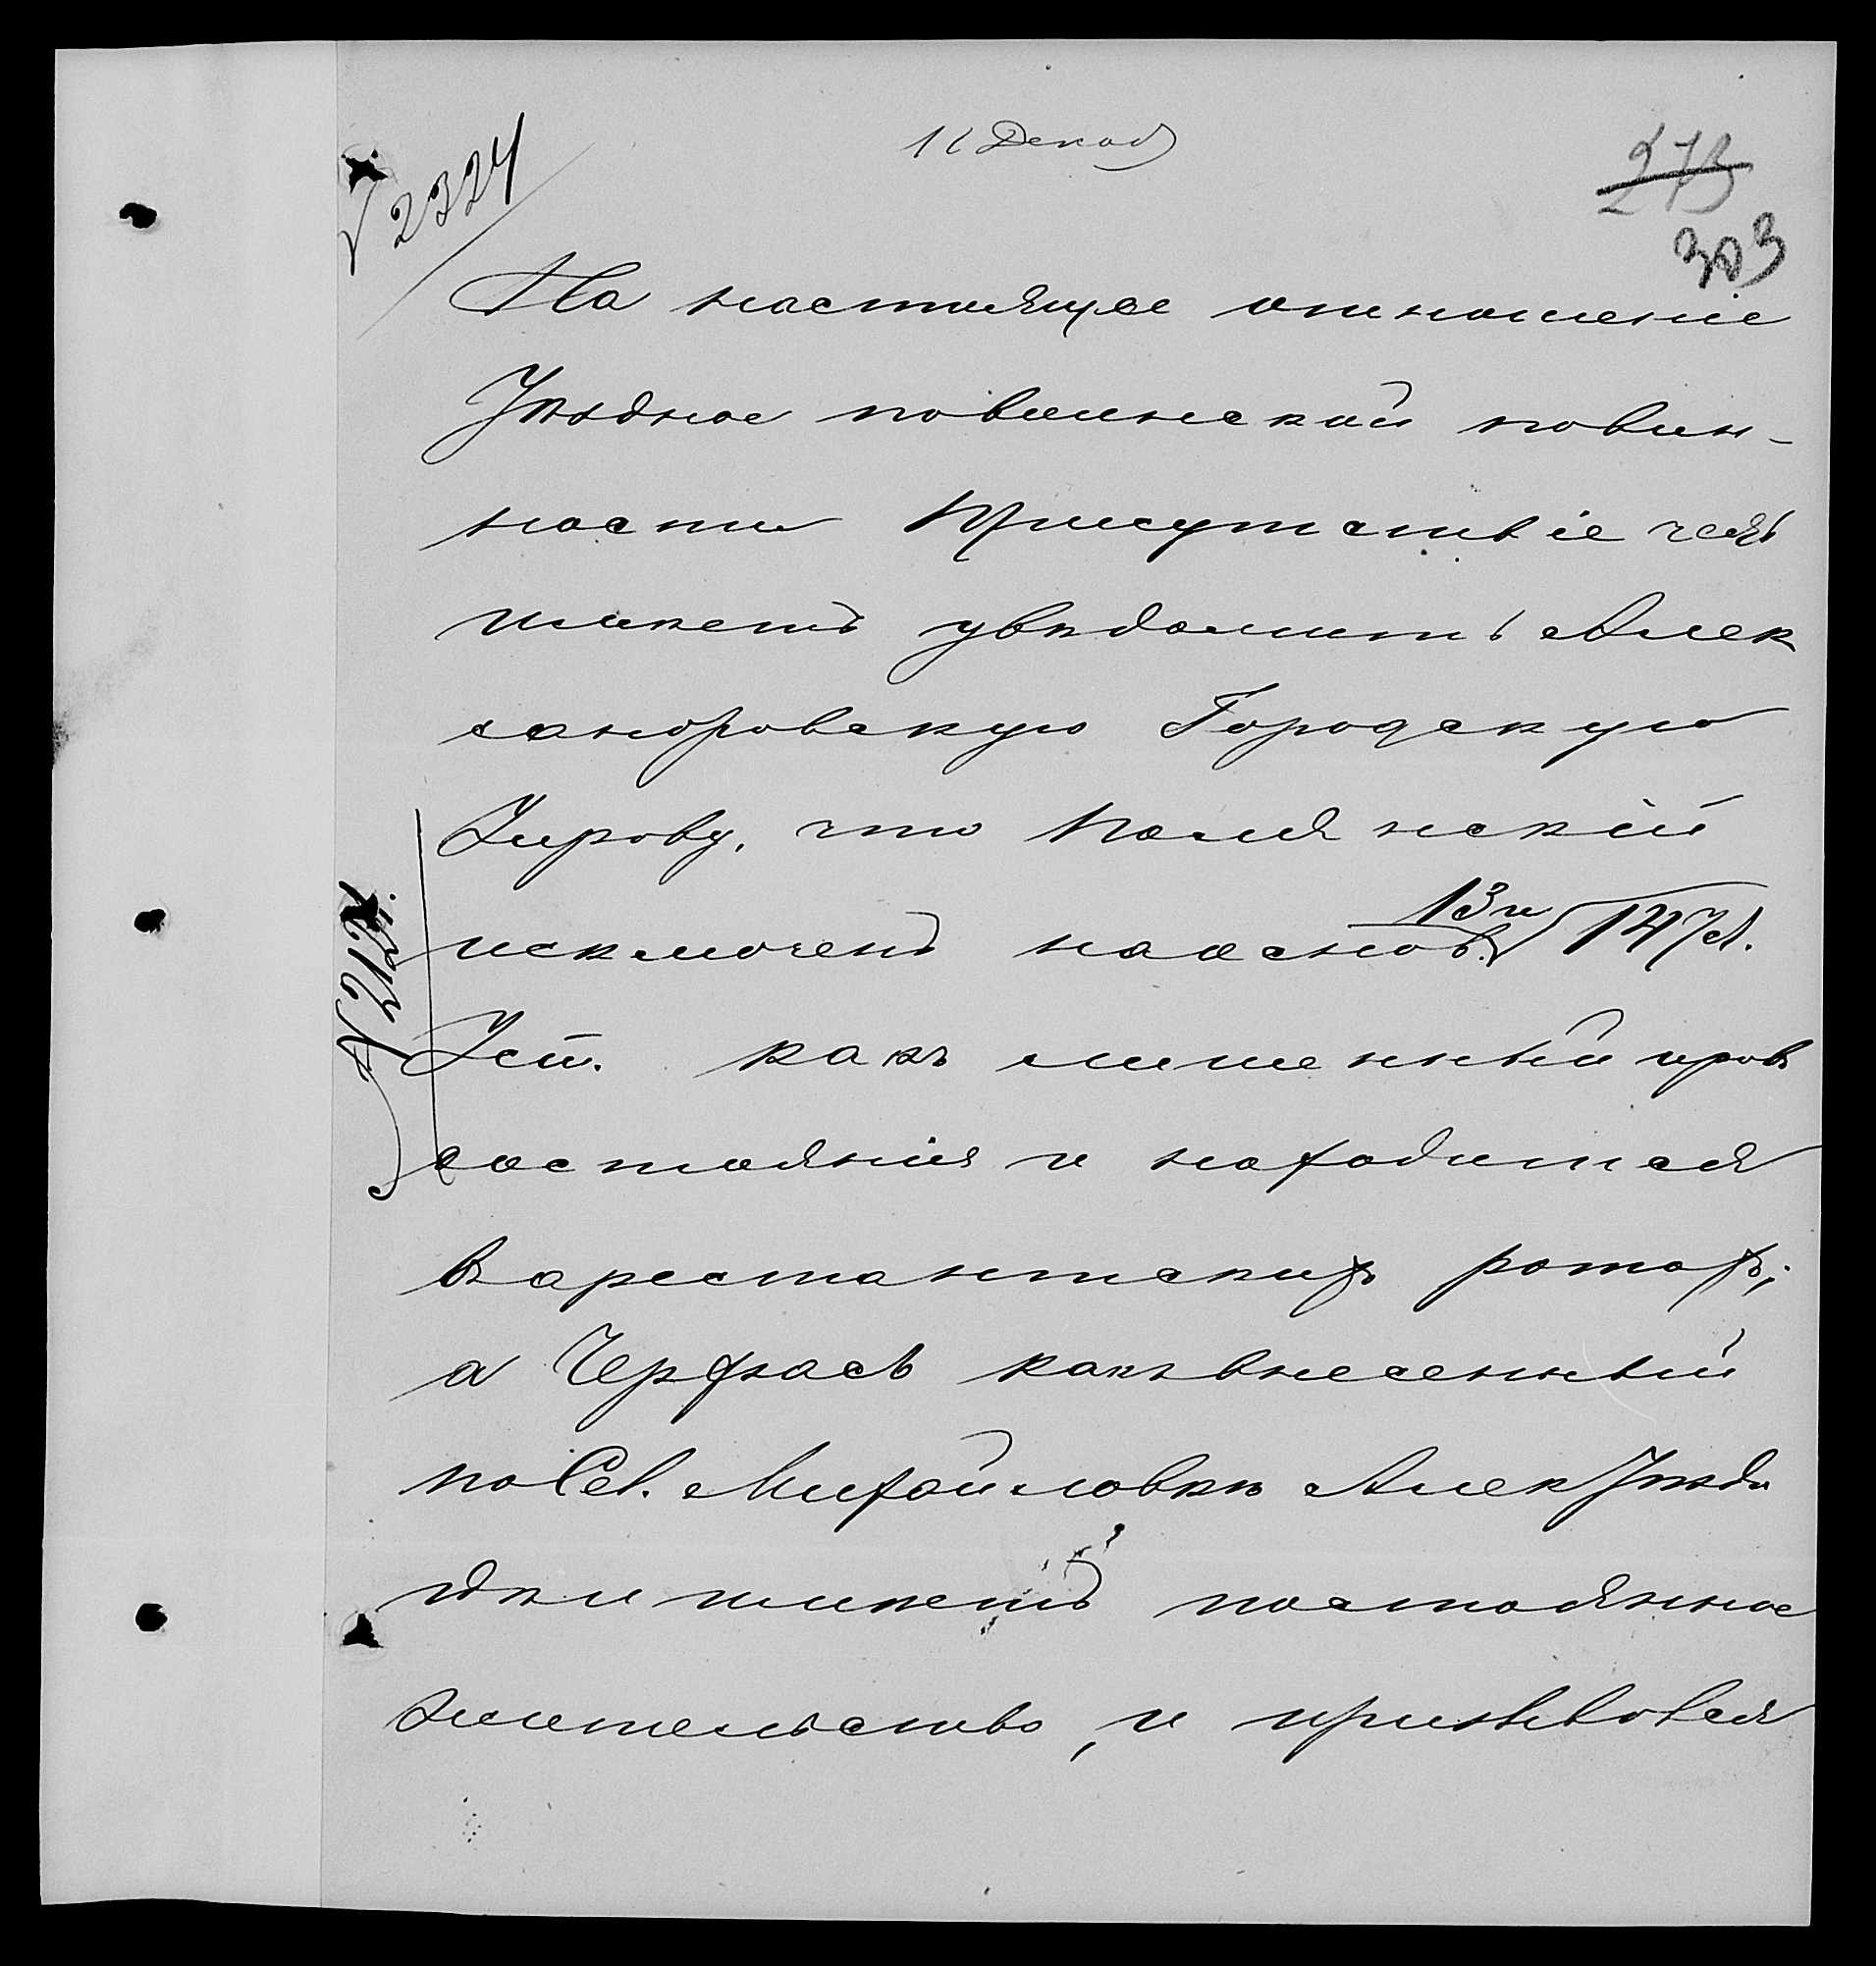 11 Декаб
№ 2324
273
303
На настоящее отношение
Уѣздное по воинской повин-
ности Присутствіе честь
имѣетъ увѣдомить Алек
сандровскую Городскую
Управу, что Полянскій
исключенъ на основ. 13 и 147 ст.
Уст. какъ лишенный правъ
состоянія и находится
въ арестантскихъ ротахъ;
а Черфасъ какъ внесенный
по Сел. Михайловкѣ Алек Уѣзда
гдѣ и имѣетъ постоянное
жительство, и призывался